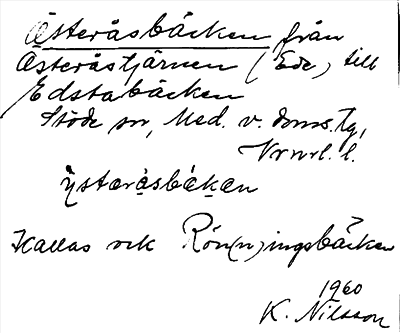 Österåsbäcken från
Österåstjärnen (Ede) till
Edstabäcken
Stöde sn, Med. v. doms. tg,
Vrnrl. l.
ỳstæra̱sbäka̱n
Kallas ock Rön(n)ingsbäcken
1960
K. Nilsson